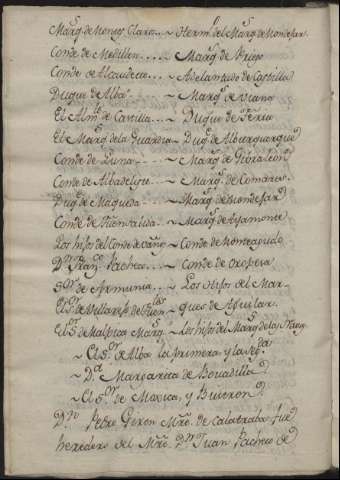 Marq.s de Montes Claros ~ Herm.o del Marq.s de Mondejar
Conde de Medellin .... ~ Marq.s de Priego
Conde de Alcaudete ... ~ Adelantado de Castilla
Duque de Alba ~ Marq.s de Viana
El Alm.te de Castilla ... ~ Duque de Feria
El Marq.s de la Guardia ~ Duq.e de Alburquerque
Conde de Luna ~ Marq.s de Gibraleon
Conde de Albadeliste ~ Marq.s de Comares
Duq.e de Maqueda ~ Marq.s de Mondejar
Conde de Fuensalida ~ Marq.s de Ayamonte
Los hijos del Conde de ~ Conde de Monteagudo
D.n Fran.co Pacheco ... ~ Conde de Oropesa
S.or de Armunia ... ~ Los Hijos del Mar-
El S.or de Villarejo de Fuen.. ques de Aguilar
El S.or de Malpica Marq.s ~ Los hijos del Marq.s de las
~ El S.or de Alba la primera, y la Seg.da
~ D.a Margarita de Bobadilla
~ El S.or de Moxica, y Buitron
D.n Pedro Giron Mro. de Calatraba fue
heredero del Mro. D.n Juan Pacheco de